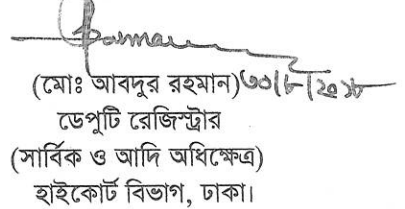 (মোঃ আবদুর রহমান) ৩০/৮/২০১৮
ডেপুটি রেজিস্ট্রার
(সার্বিক ও আদি অধিক্ষেত্র)
হাইকোর্ট বিভাগ, ঢাকা।